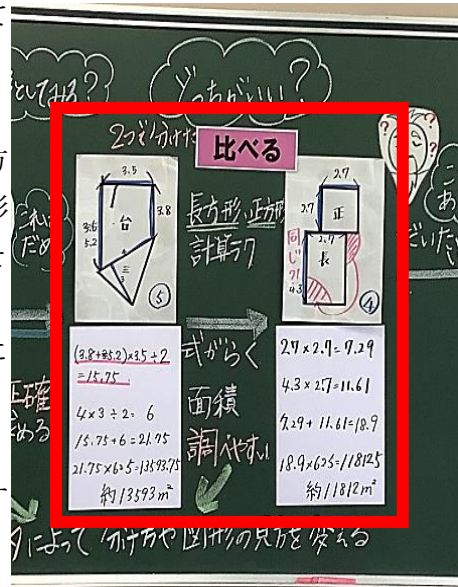 どっちがいい?
2つで分けた
比べる
3.5
3.8
台
5.2
三
⑤
長方形、正方形
計算ラク
2.7
2.7
正
同じ?!
2.7
長
4.3
④
(3.8+5.2)×3.5÷2
=15.75
4×3÷2=6
15.75+6=21.75
21.75×625=13593.75
約13593m²
式がらく
面積
調べやすい
2.7×2.7=7.29
4.3×2.7=11.61
7.29+11.61=18.9
18.9×625=11812.5
約11812m²
正確
によって分け方や図形の見方を変える